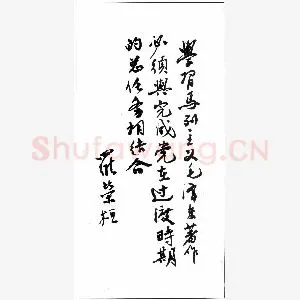 學習馬列主义毛澤东著作
必須與完成党在过渡時期
的总任务相结合
羅荣桓
Shufawang.CN